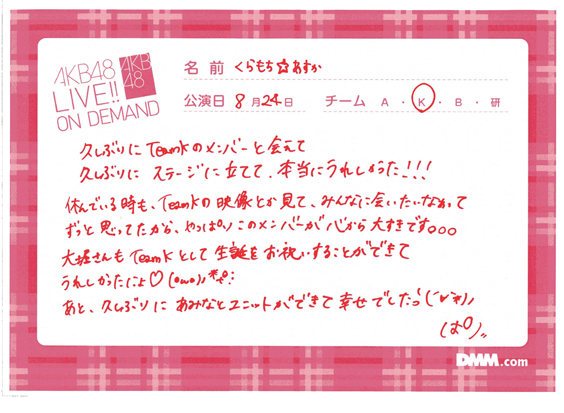 AKB48
LIVE!!
ON DEMAND
AKB
48
名前 くらもち☆あすか
公演日 8月24日 チーム A・K・B・研
久しぶりに TeamKのメンバーと会えて
久しぶりに ステージに立てて、本当にうれしかった!!!
休んでいる時も、TeamKの映像とか見て、みんなに会いたいなぁって
ずっと思ってたから、やっぱりこのメンバーが心から大すきです。。。
大堀さんも TeamKとして 生誕を お祝いすることができて
うれしかったによ♡(・ω・)ノ
あと、久しぶりに あみなとユニットができて 幸せでしたっ(´∀`*)ノ
(ぱ)
DMM.com